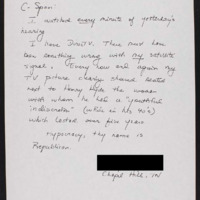 C-Span
I watched every minute of yesterday's
hearing
I have DirecTV. There must have
been something wrong with my satellite
signal. Every now and again my
TV picture clearly showed seated
next to Henry Hyde the woman
with whom he had a "youthful
indiscretion" (while in his 40's)
which lasted over five years
Hypocrisy, thy name is
Republican.
Chapel Hill, NC